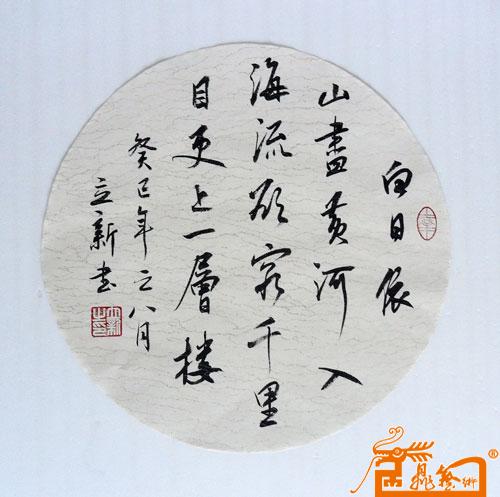 白日依
山盡黄河入
海流欲窮千里
目更上一層樓
癸巳年之八月
立新書